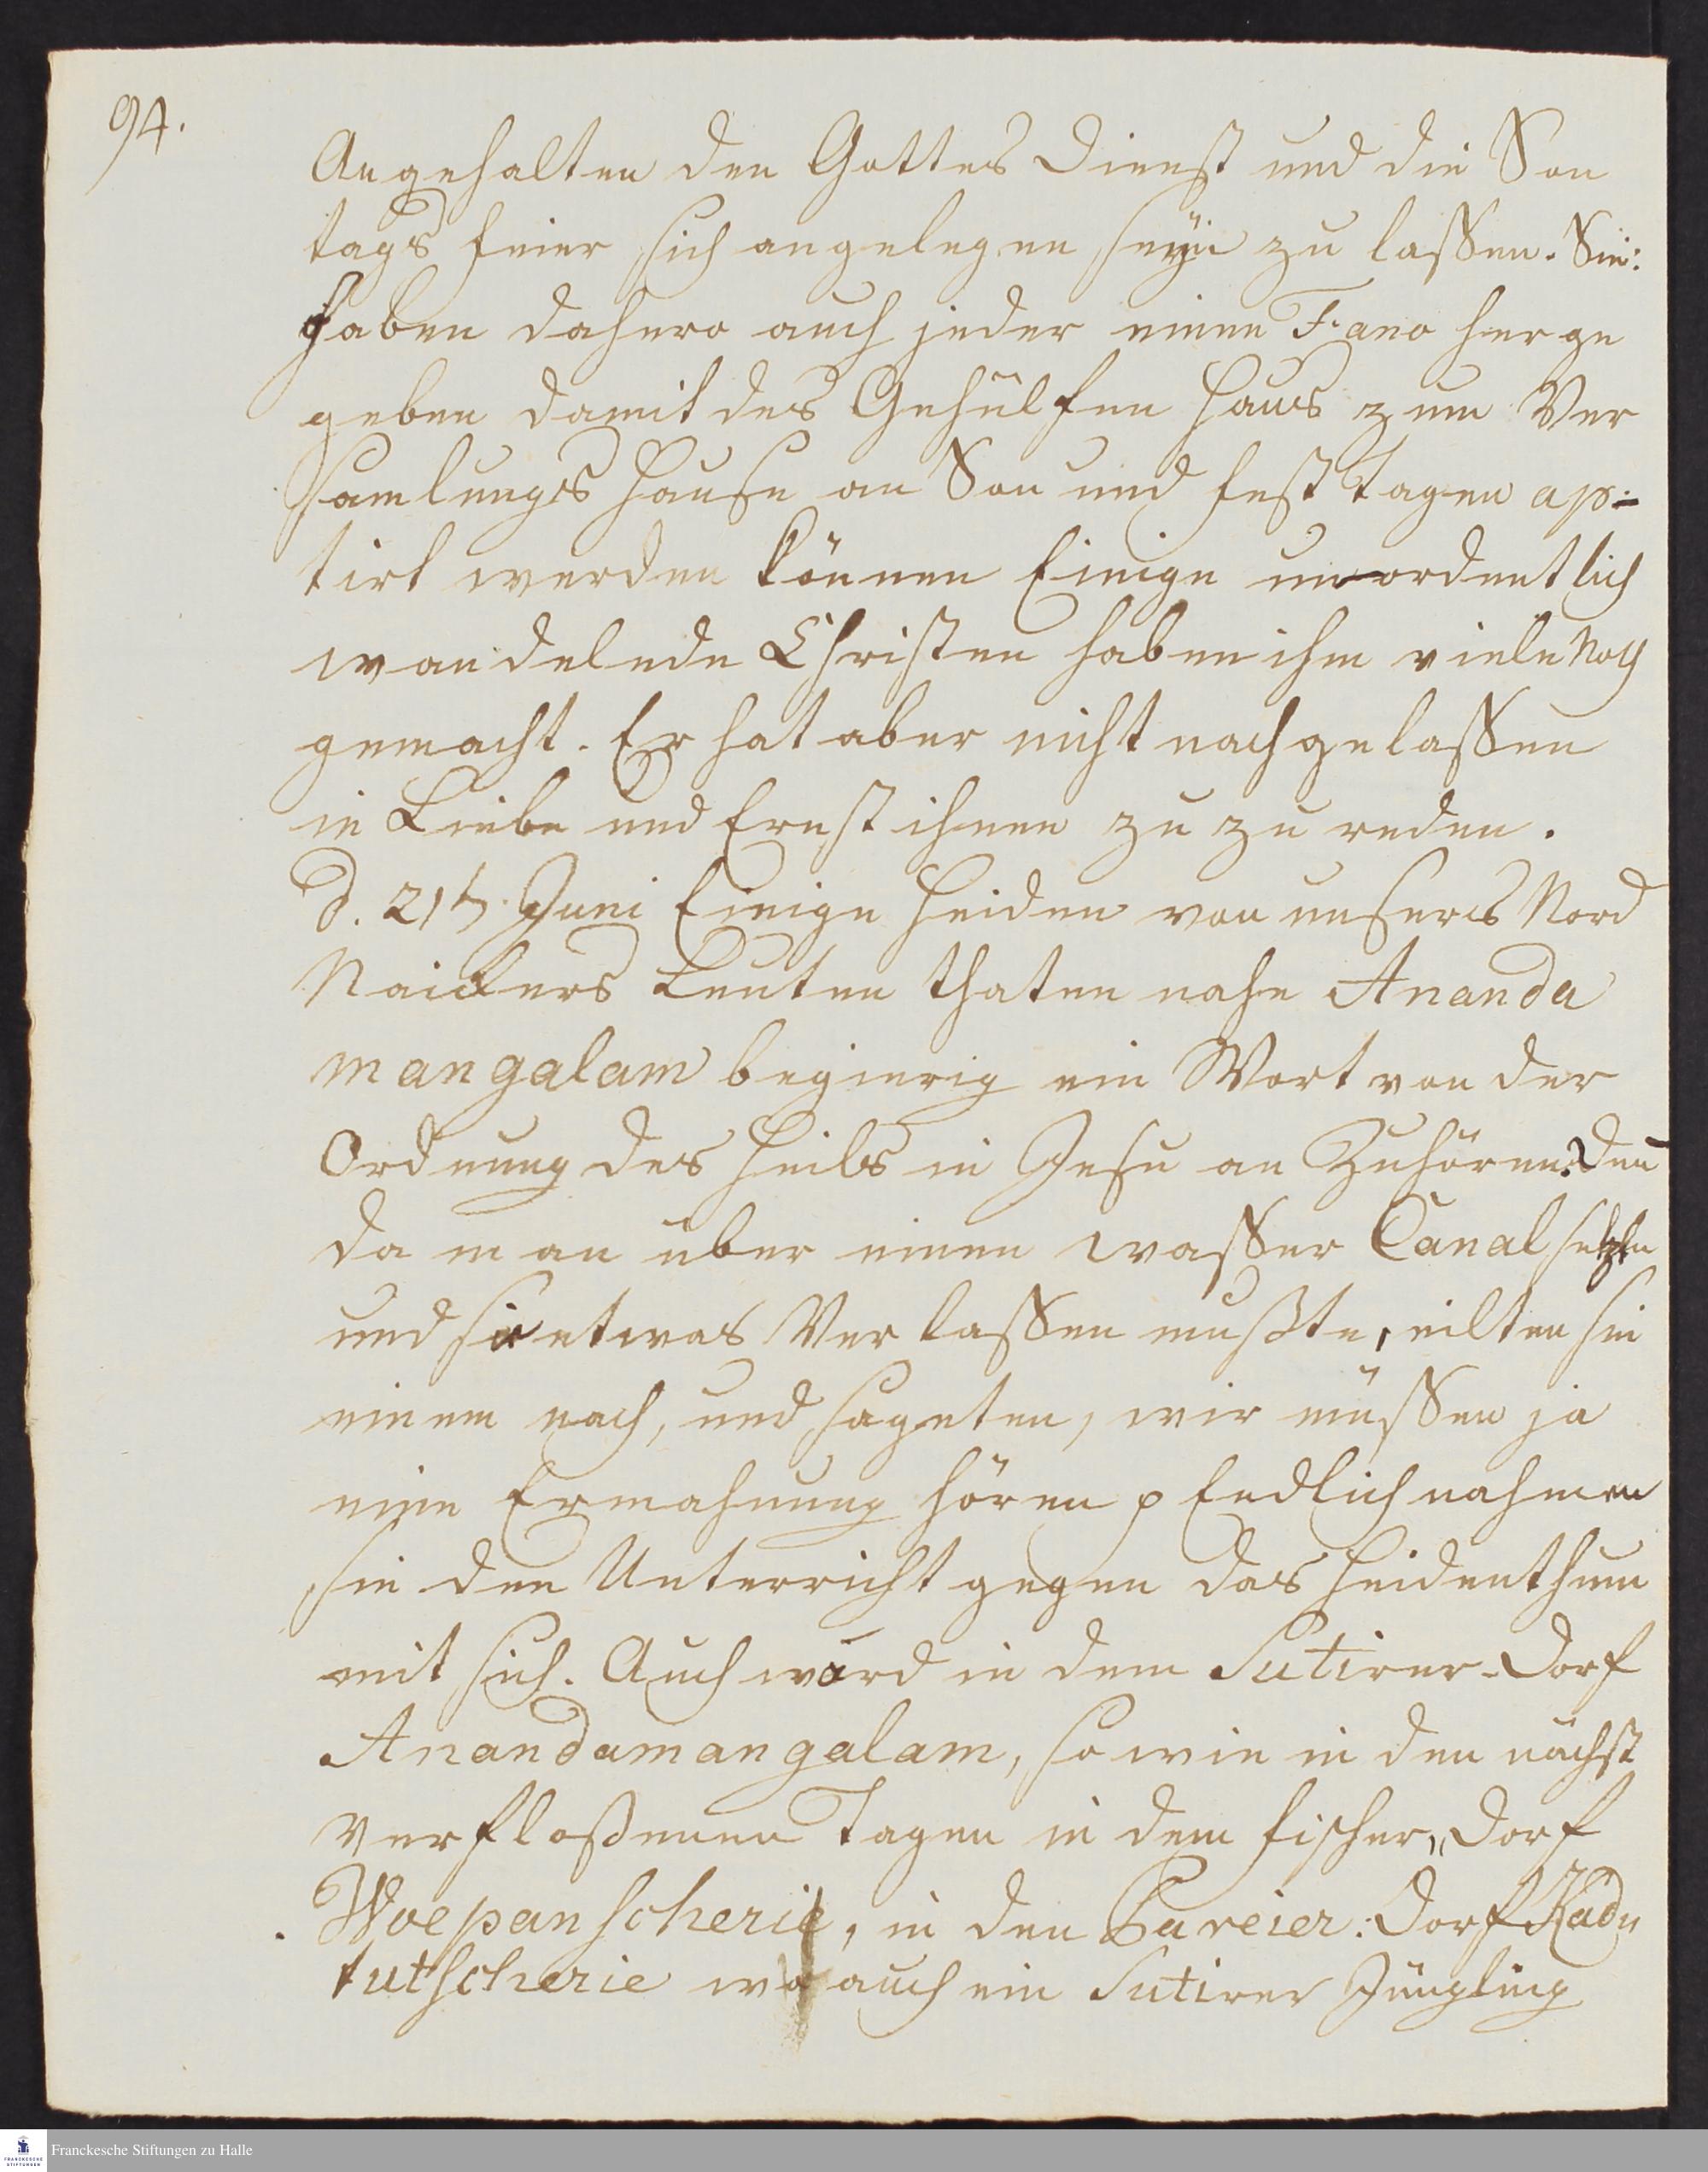 94.
Angehalten den Gottes Dienst und die Son
tags feier sich angelegen seyn zu laßen. Sie:
haben dahero auch jeder einen Fano herge
geben damit des Gehülfen Haus zum Ver
samlungs Hause an Son und fest Tagen ap=
tirt werden können Einige unordentlich
wandelnde Christen haben ihm viele Noth
gemacht. Er hat aber nicht nachgelaßen
in Liebe und Ernst ihnen zu zu reden.
d. 21t. Juni Einige Heiden von unsers Nord
Naickers Leuten thaten nahe Ananda
mangalam begierig ein Wort von der
Ordnung des Heils in Jesu an Zuhören. Den
da man über einen waßer Canal setzte
und sie etwas Verlaßen mußte, eilten sie
einem nach, und sageten, wir müßen ja
eine Ermahnung hören p Endlich nahmen
sie den Unterricht gegen das Heidenthum
mit sich. Auch ward in dem Sutirer-Dorf
Anandamangalam, so wie in den nächst
verfloßenen Tagen in dem fischer„Dorf
Woepanscherie, in den Pareier: Dorf Kadu
tutscherie wo auch ein Sutirer Jüngling
Franckesche Stiftungen zu Halle